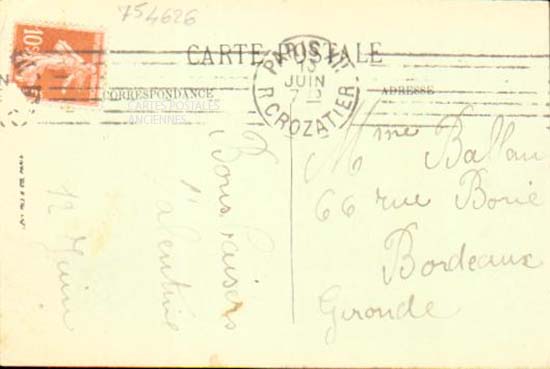 754626
CARTE POSTALE
CORRESPONDANCE
ADRESSE
CARTES POSTALES
ANCIENNES
10
JUIN
R CROZATIER
10c
Mme Ballan
66 rue Borie
Bordeaux
Gironde
Bons baisers
Valentine
12 Juin